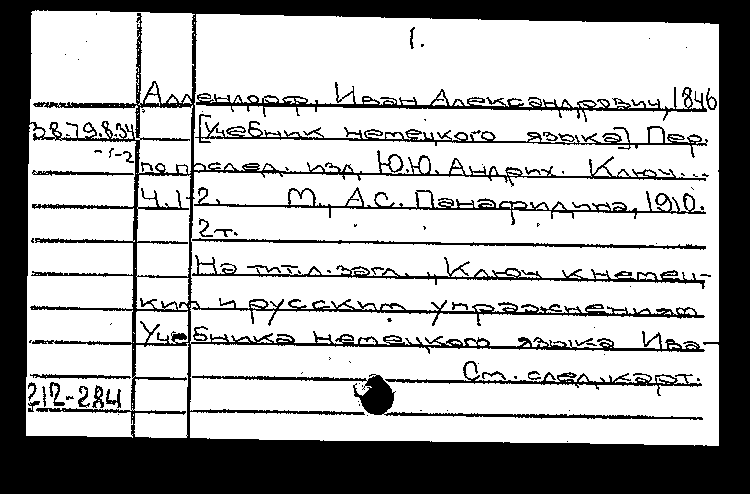 1.
Аллендорф, Иван Александрович, 1846
38.79.8.34
[Учебник немецкого языка]. Пер.
-1-2
по послед. изд. Ю.Ю. Андрих. Ключ...
Ч. 1-2. М., А.С. Панафидина, 1910.
2 т.
На тит. л. загл.: „Ключ к немец-
ким и русским упражнениям
Учебника немецкого языка Ива-
См. след. карт.
212-284